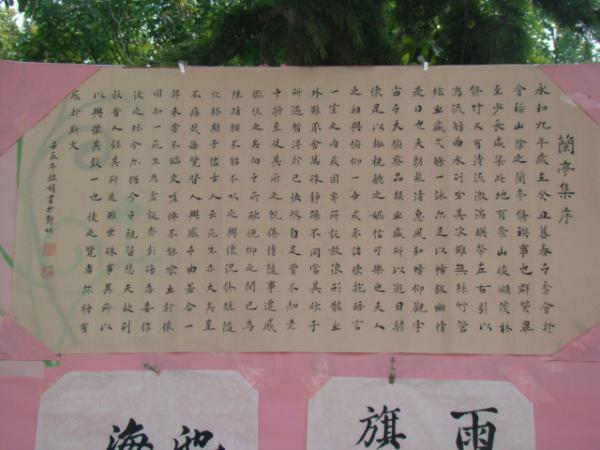 蘭亭集序
永和九年歲在癸丑暮春之初會於
會稽山陰之蘭亭脩禊事也群賢畢
至少長咸集此地有崇山峻領茂林
脩竹又有清流激湍映帶左右引以
為流觴曲水列坐其次雖無絲竹管
絃之盛一觴一詠亦足以暢敘幽情
是日也天朗氣清惠風和暢仰觀宇
宙之大俯察品類之盛所以遊目騁
懷足以極視聽之娛信可樂也夫人
之相與俯仰一世或取諸懷抱悟言
一室之内或因寄所託放浪形骸之
外雖取舍萬殊靜躁不同當其欣于
所遇暫得於己快然自足曾不知老
之將至及其所之既倦情隨事遷感
慨係之矣向之所欣俛仰之間已為
陳蹟猶不能不以之興懷況脩短隨
化終期于盡古人云死生亦大矣豈
不痛哉每覽昔人興感之由若合一
契未嘗不臨文嗟悼不能喻之於懷
固知一死生為虛誕齊彭殤為妄作
後之視今亦猶今之視昔悲夫故列
敘時人錄其所述雖世殊事異所以
興懷其致一也後之覽者亦將有
感於斯文
雨
旗
海